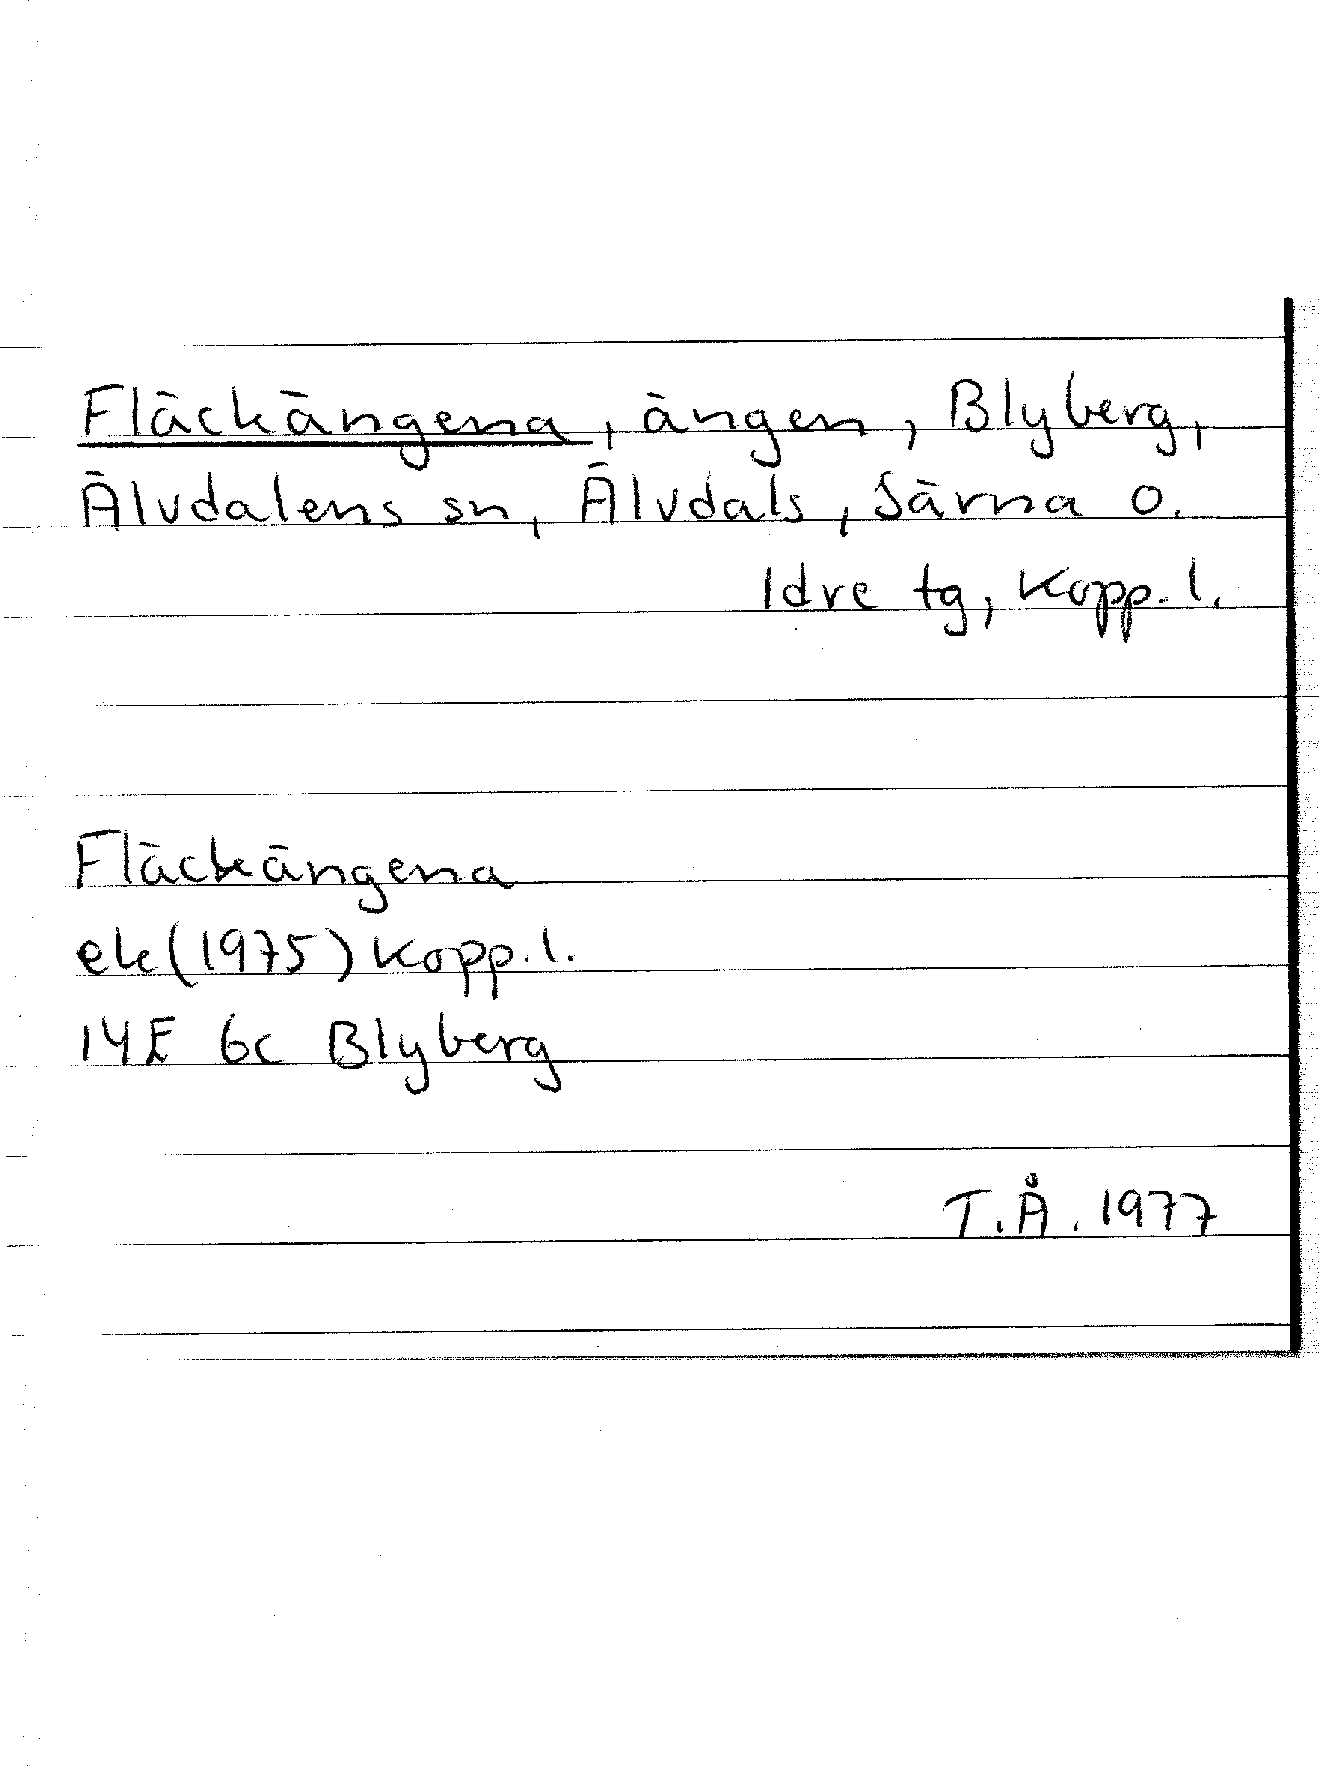 Fläckängena, ängen, Blyberg,
Älvdalens sn, Älvdals, Särna o.
Idre tg, Kopp. l.
Fläckängena
ek(1975) Kopp. l.
14E 6c Blyberg
T.Å. 1977